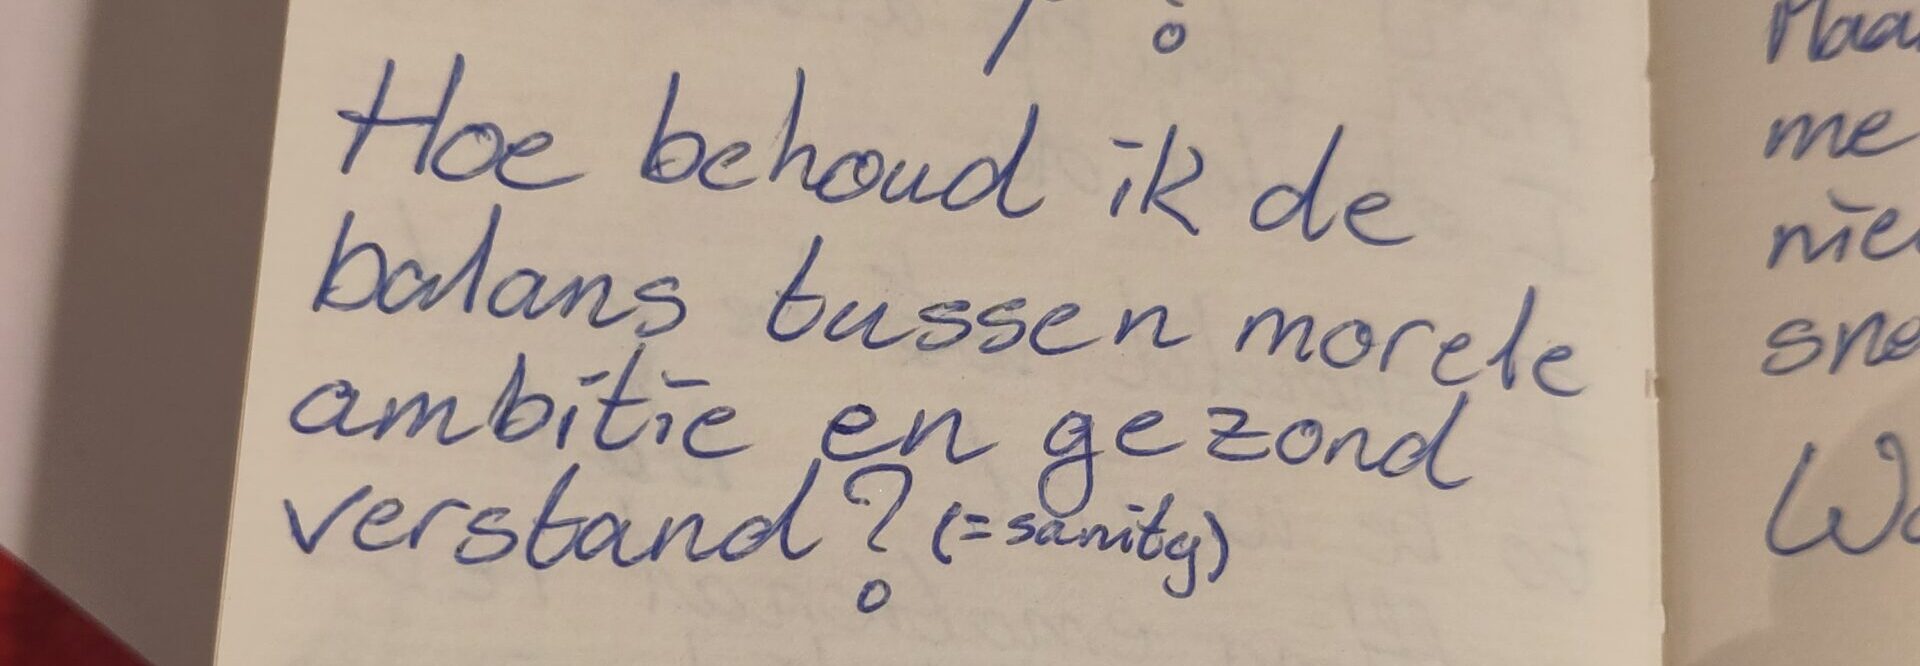 Hoe behoud ik de
balans tussen morele
ambitie en gezond
verstand? (=sanity)
me